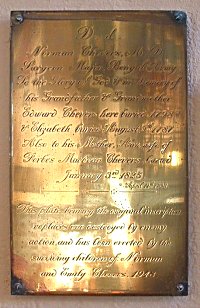 D. d.
Norman Chevers, M.D.
Surgeon Major Bengal Army
To the Glory of God & in Memory of
his Grandfather & Grandmother
Edward Chevers here buried
& Elizabeth buried August
Also to his Mother, wife of
Forbes Chevers buried
January 3rd
This plate bearing the original inscription
replaces one destroyed by enemy
action and has been erected by the
surviving children of Norman
and Emily Chevers. 1943